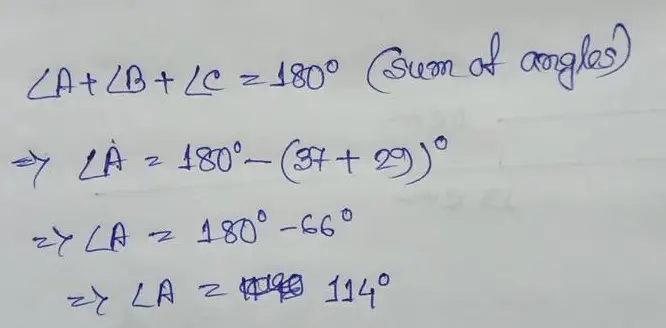 ∠A + ∠B + ∠C = 180° (Sum of angles)
⇒ ∠A = 180° - (37 + 29)°
⇒ ∠A = 180° - 66°
⇒ ∠A = 114°